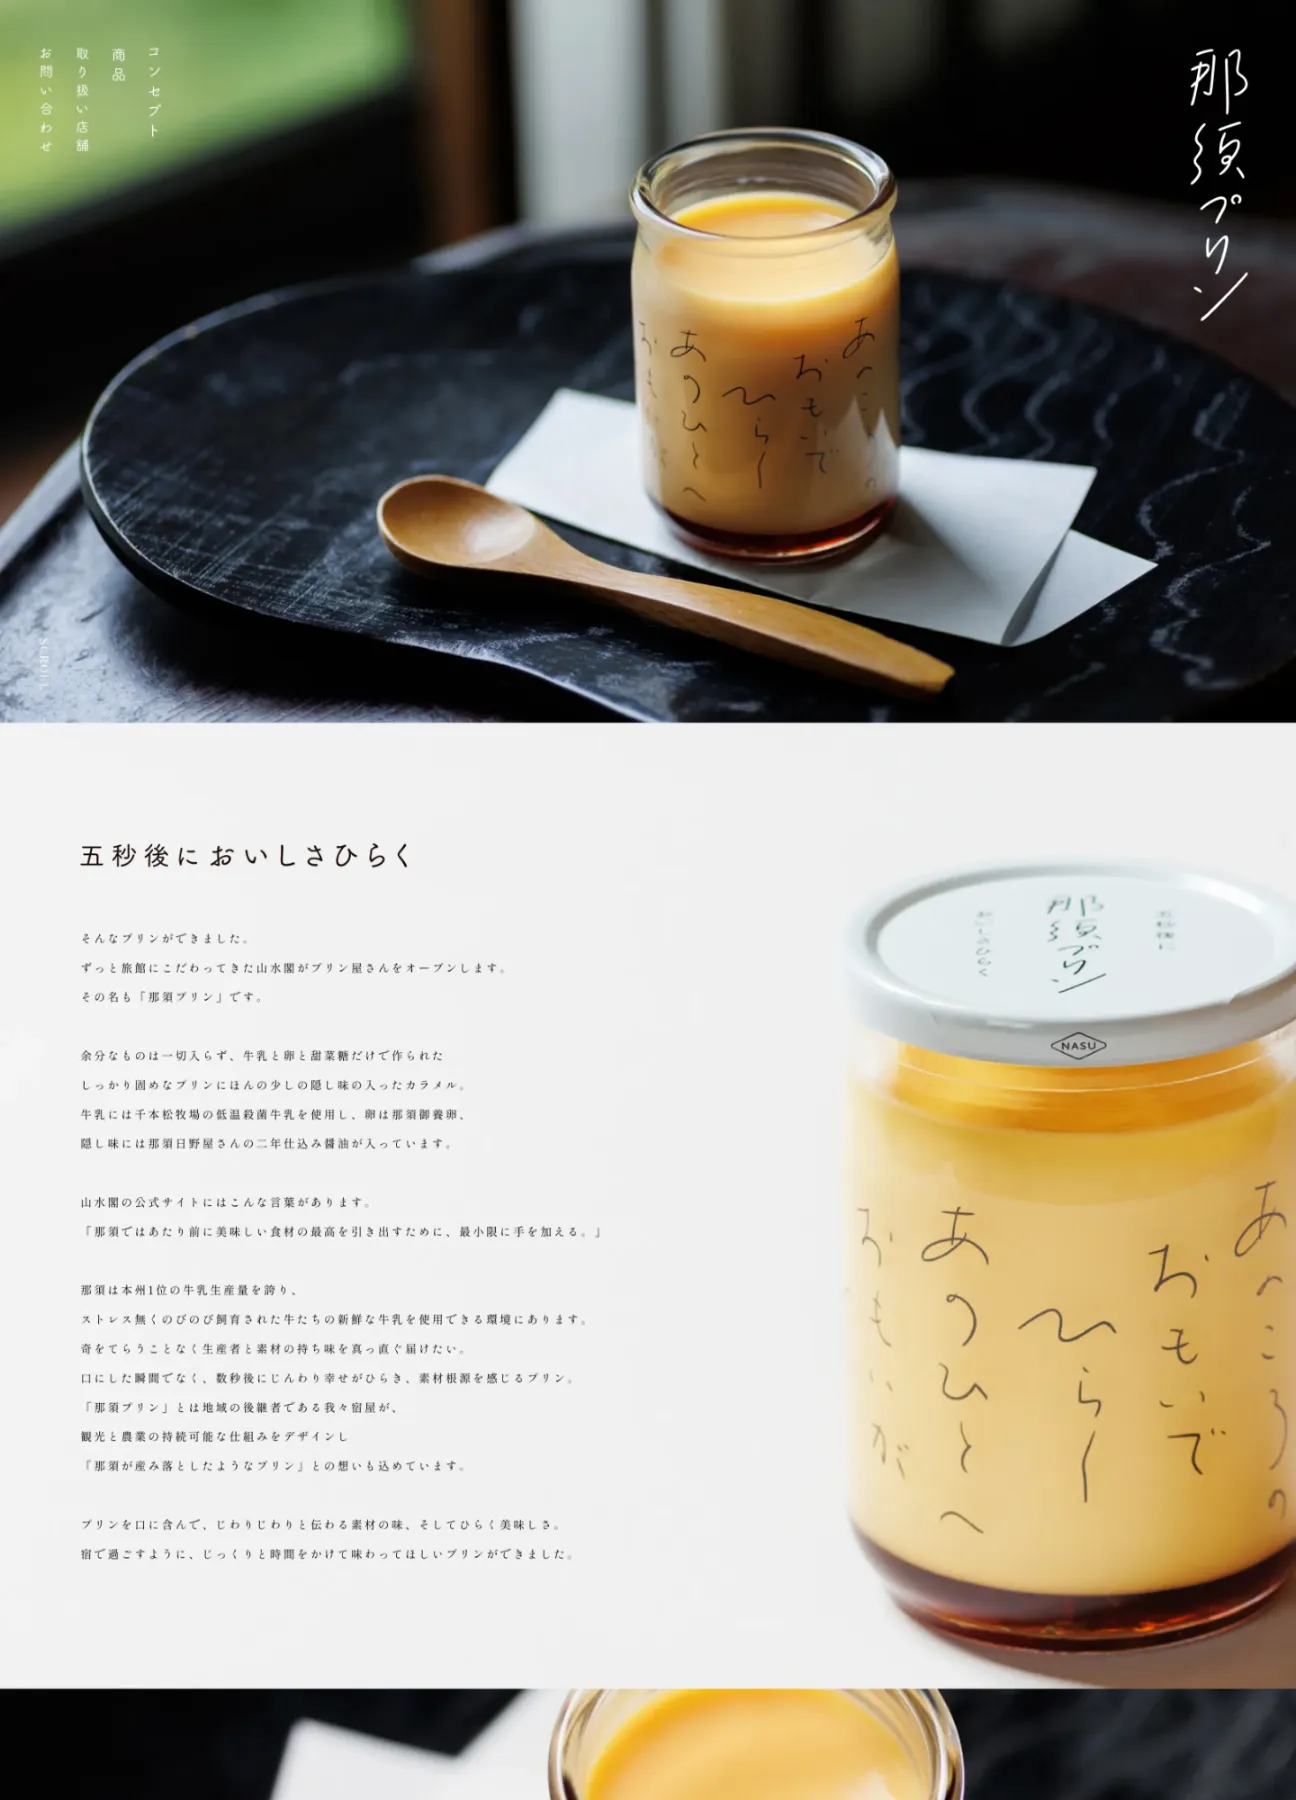 コンセプト
商品
取り扱い店舗
お問い合わせ
那須プリン
あのひとへ
おもいで
ひらく
SCROLL
五秒後においしさひらく
そんなプリンができました。
ずっと旅館にこだわってきた山水閣がプリン屋さんをオープンします。
その名も「那須プリン」です。
余分なものは一切入らず、牛乳と卵と甜菜糖だけで作られた
しっかり固めなプリンにほんの少しの隠し味の入ったカラメル。
牛乳には千本松牧場の低温殺菌牛乳を使用し、卵は那須御養卵、
隠し味には那須日野屋さんの二年仕込み醤油が入っています。
山水閣の公式サイトにはこんな言葉があります。
「那須ではあたり前に美味しい食材の最高を引き出すために、最小限に手を加える。」
那須は本州1位の牛乳生産量を誇り、
ストレス無くのびのび飼育された牛たちの新鮮な牛乳を使用できる環境にあります。
奇をてらうことなく生産者と素材の持ち味を真っ直ぐ届けたい。
口にした瞬間でなく、数秒後にじんわり幸せがひらき、素材根源を感じるプリン。
「那須プリン」とは地域の後継者である我々宿屋が、
観光と農業の持続可能な仕組みをデザインし
「那須が産み落としたようなプリン」との想いも込めています。
プリンを口に含んで、じわりじわりと伝わる素材の味、そしてひらく美味しさ。
宿で過ごすように、じっくりと時間をかけて味わってほしいプリンができました。
五秒後に
那須プリン
おいしさひらく
NASU
あのころの
おもいで
ひらく
あのひとへ
おもいが